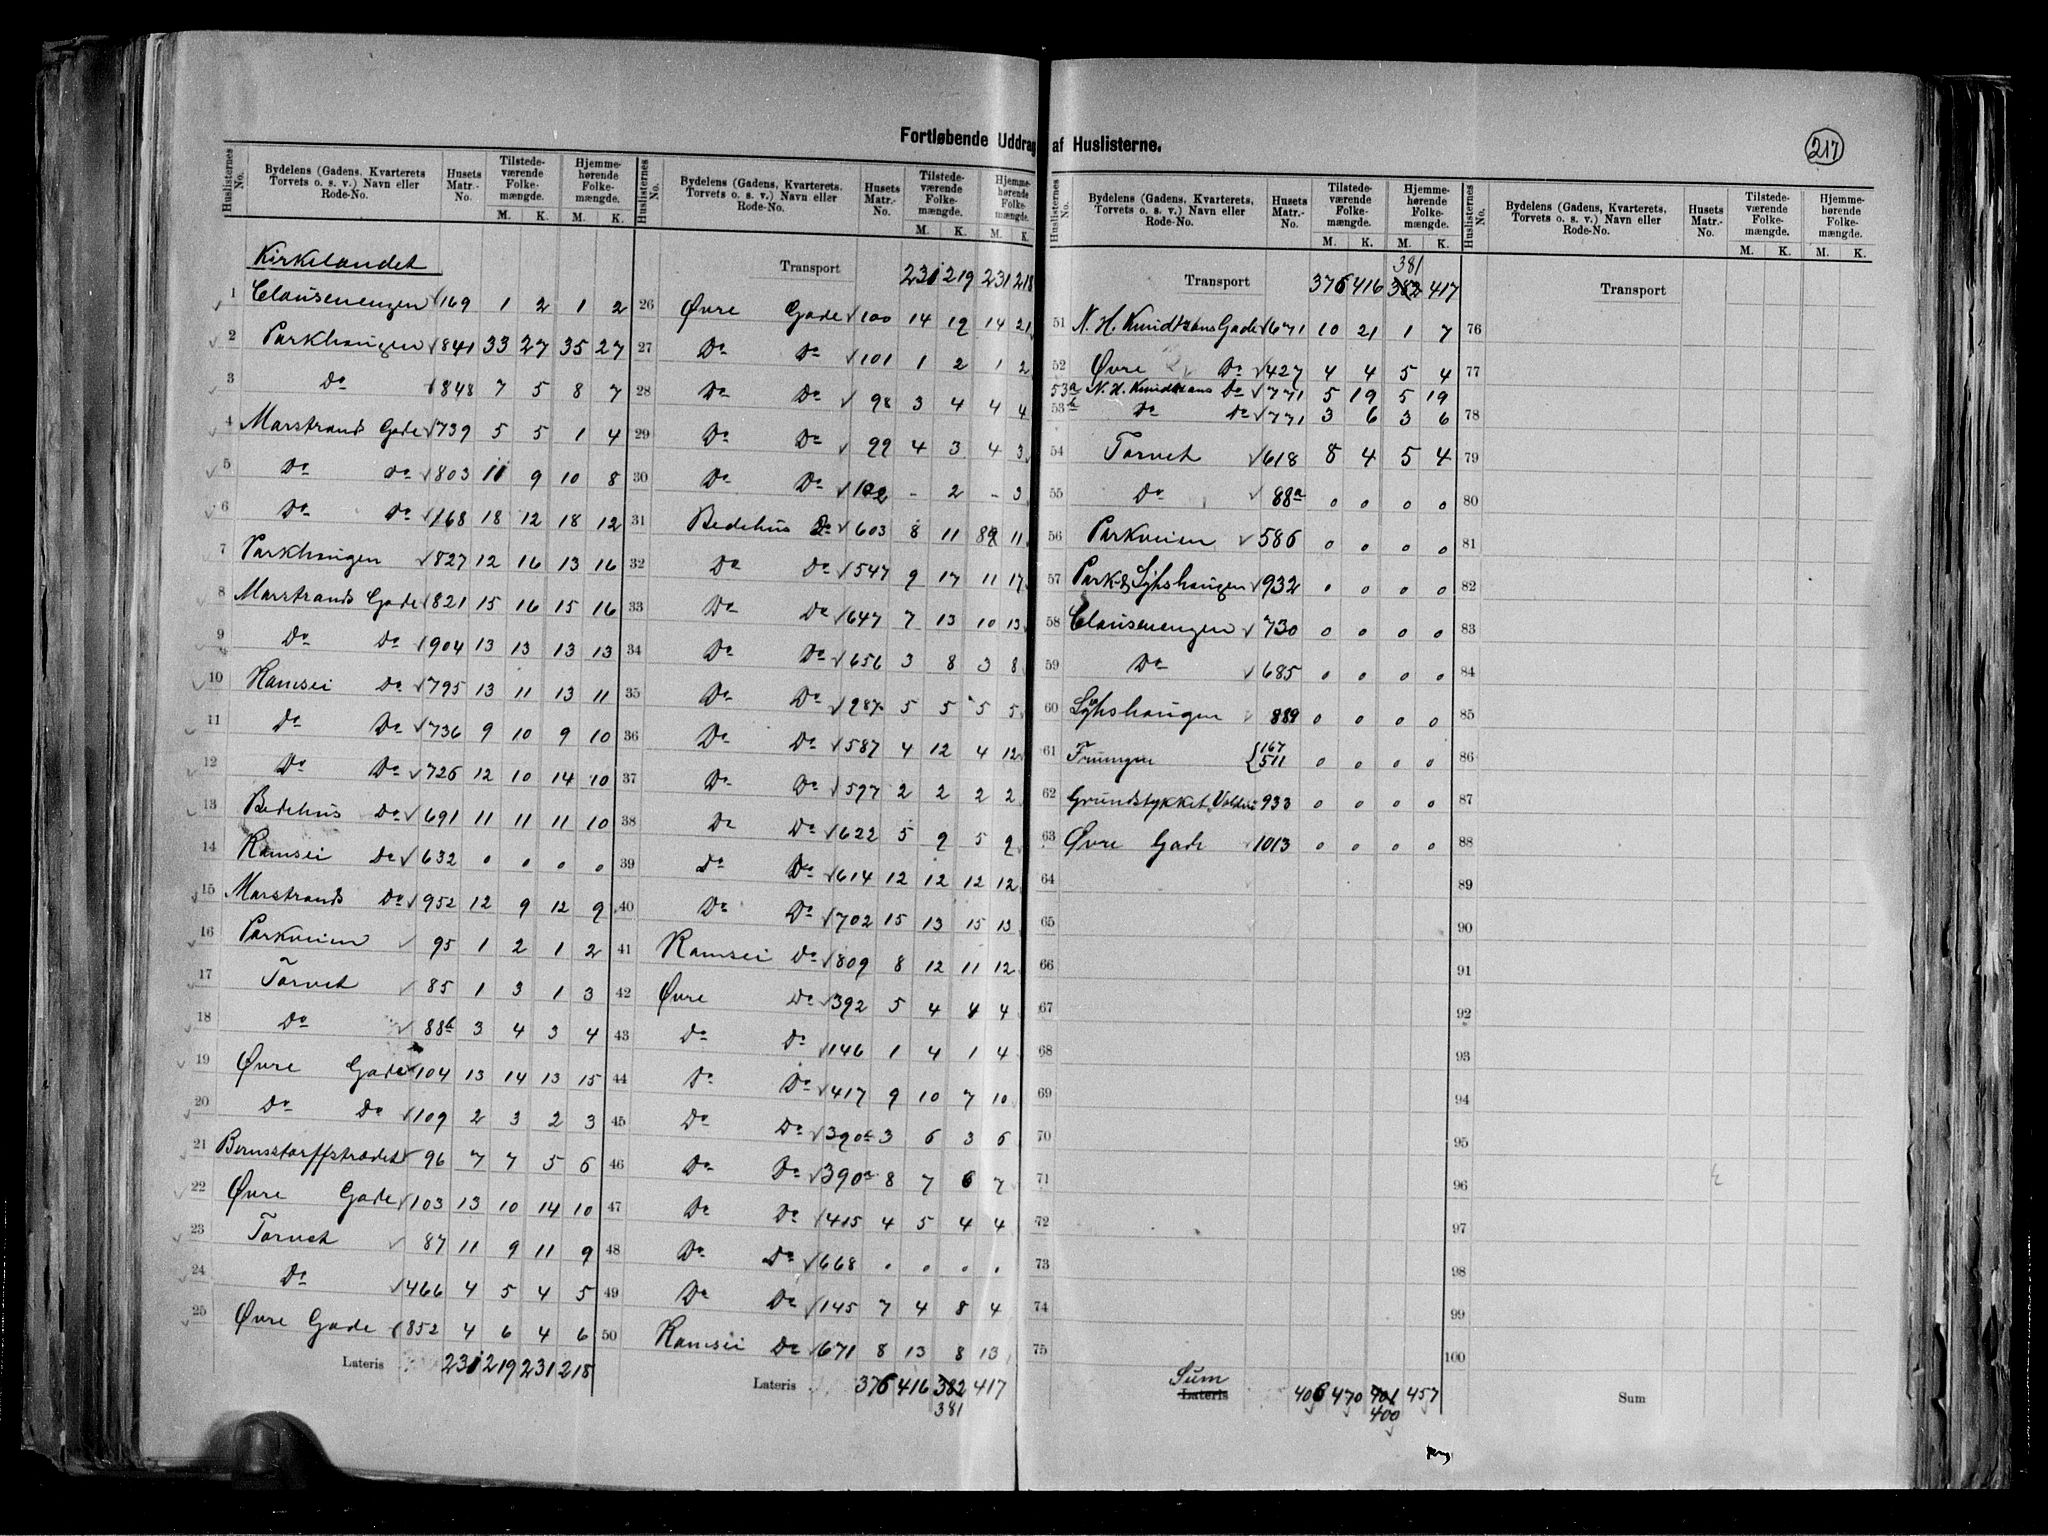 Fortløbende Uddrag af Huslisterne.
217
Huslisternes No. | Bydelens (Gadens, Kvarterets, Torvets o. s. v.) Navn eller Rode-No. | Husets Matr.-No. | Tilstedeværende Folkemængde. M. K. | Hjemmehørende Folkemængde. M. K.
Kirkelandet
1 Clausenengen 169 1 2 1 2
2 Parkhaugen 841 33 27 35 27
3 Do 848 7 5 8 7
4 Marstrands Gade 739 5 5 1 4
5 Do do 803 11 9 10 8
6 Do do 168 18 12 18 12
7 Parkhaugen 827 12 16 13 16
8 Marstrands Gade 821 15 16 15 16
9 Do Do 904 13 13 13 13
10 Ramsei Do 795 13 11 13 11
11 Do Do 736 9 10 9 10
12 Do Do 726 12 10 14 10
13 Bedehus Do 691 11 11 11 10
14 Ramsei Do 632 0 0 0 0
15 Marstrands Do 952 12 9 12 9
16 Parkveien 95 1 2 1 2
17 Torvet 85 1 3 1 3
18 Do 88b 3 4 3 4
19 Øvre Gade 104 13 14 13 15
20 Do Do 109 2 3 2 3
21 Bernstorffstrædet 96 7 7 5 6
22 Øvre Gade 103 13 10 14 10
23 Torvet 87 11 9 11 9
24 Do 466 4 5 4 5
25 Øvre Gade 852 4 6 4 6
Lateris 231 219 231 218
Huslisternes No. | Bydelens (Gadens, Kvarterets, Torvets o. s. v.) Navn eller Rode-No. | Husets Matr.-No. | Tilstedeværende Folkemængde. M. K. | Hjemmehørende Folkemængde. M. K.
Transport 231 219 231 218
26 Øvre Gade 100 14 19 14 21
27 Do Do 101 1 2 1 2
28 Do Do 98 3 4 4 4
29 Do Do 99 4 3 4 3
30 Do Do 102 - 2 - 3
31 Bedehus Do 603 8 11 11
32 Do Do 547 9 17 11 17
33 Do Do 647 7 13 10 13
34 Do Do 656 3 8 3 8
35 Do Do 987 5 5 5 5
36 Do Do 587 4 12 4 12
37 Do Do 597 2 2 2 2
38 Do Do 622 5 9 5 9
39 Do Do 614 12 12 12 12
40 Do Do 702 15 13 15 13
41 Ramsei Do 809 8 12 11 12
42 Øvre Do 392 5 4 4 4
43 Do Do 146 1 4 1 4
44 Do Do 417 9 10 7 10
45 Do Do 390b 3 6 3 6
46 Do Do 390a 8 7 6 7
47 Do Do 415 4 5 4 4
48 Do Do 668 0 0 0 0
49 Do Do 145 7 4 8 4
50 Ramsei Do 671 8 13 8 13
Lateris 376 416 382 417
381
Huslisternes No. | Bydelens (Gadens, Kvarterets, Torvets o. s. v.) Navn eller Rode-No. | Husets Matr.-No. | Tilstedeværende Folkemængde. M. K. | Hjemmehørende Folkemængde. M. K.
381
Transport 376 416 382 417
51 N. H. Knudtzons Gade 671 10 21 1 7
52 Øvre Do 427 4 4 5 4
53a N. H. Knudtzons Do 771 5 19 5 19
53b Do Do 771 3 6 3 6
54 Torvet 618 8 4 5 4
55 Do 88a 0 0 0 0
56 Parkveien 586 0 0 0 0
57 Park & Lykshaugen 932 0 0 0 0
58 Clausenengen 730 0 0 0 0
59 Do 685 0 0 0 0
60 Lykshaugen 889 0 0 0 0
61 167 511 0 0 0 0
62 Grundstykket 933 0 0 0 0
63 Øvre Gade 1013 0 0 0 0
64
65
66
67
68
69
70
71
72
73
74
75
Sum
Lateris 406 470 401 457
400
Huslisternes No. | Bydelens (Gadens, Kvarterets, Torvets o. s. v.) Navn eller Rode-No. | Husets Matr.-No. | Tilstedeværende Folkemængde. M. K. | Hjemmehørende Folkemængde. M. K.
Transport
76
77
78
79
80
81
82
83
84
85
86
87
88
89
90
91
92
93
94
95
96
97
98
99
100
Sum